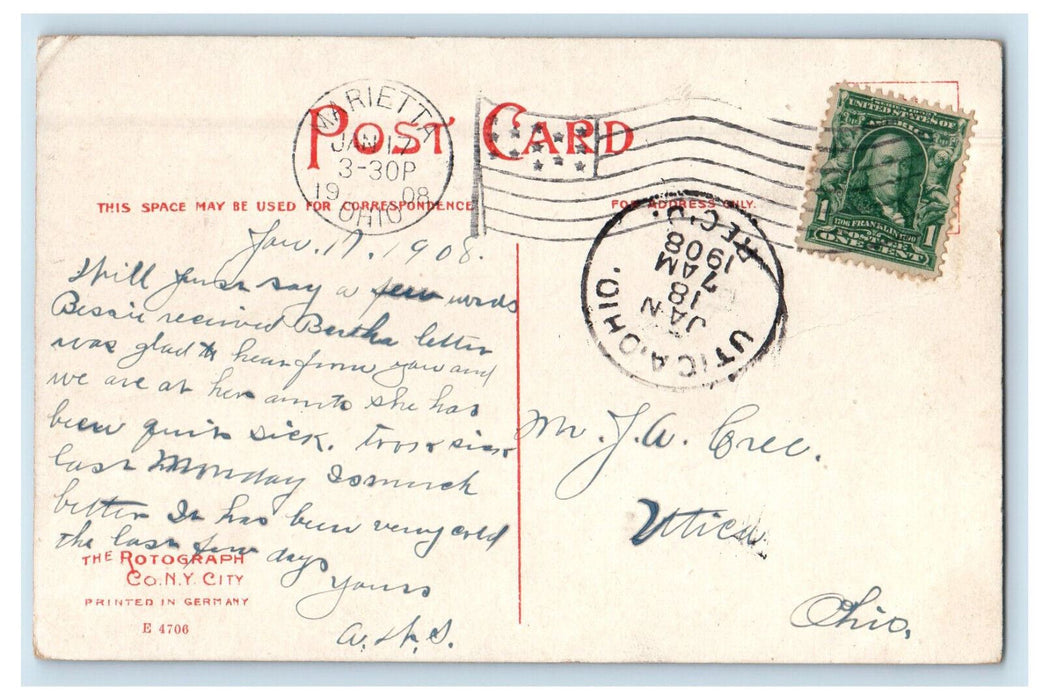 POST CARD
MARIETTA
JAN 17
3-30P
19 08
OHIO
THIS SPACE MAY BE USED FOR CORRESPONDENCE
FOR ADDRESS ONLY.
SERIES 1902
UNITED STATES OF
AMERICA
1 1
1706 FRANKLIN 1790
POSTAGE
ONE CENT
UTICA, OHIO.
JAN
18
7 AM
1908
REC'D.
Jan. 17. 1908.
Will just say a few words
Bessie received Bertha letter
was glad to hear from you and
we are at her aunts she has
been quite sick. Took sick
last Monday Is much
better It has been very cold
the last few days
Yours
Mr. J. A. Cree.
Utica
Ohio.
THE ROTOGRAPH
CO. N.Y. CITY
PRINTED IN GERMANY
E 4706